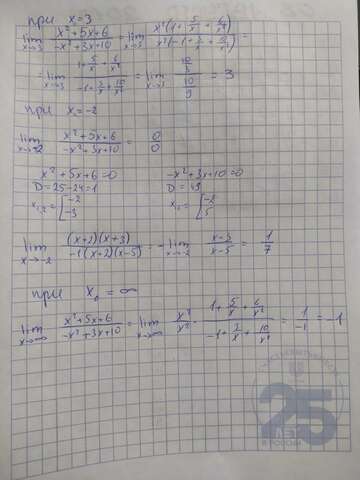 при x₀=3
lim x→3 (x²+5x+6)/(-x²+3x+10) = lim x→3 x²(1+5/x+6/x²)/x²(-1+3/x+10/x²) =
= lim x→3 (1+5/x+6/x²)/(-1+3/x+10/x²) = lim x→3 (10/3)/(10/9) = 3
при x₀=-2
lim x→-2 (x²+5x+6)/(-x²+3x+10) = 0/0
x²+5x+6=0 -x²+3x+10=0
D=25-24=1 D=49
x₁,₂=[-2 -3 x₁,₂=[-2 5
lim x→-2 (x+2)(x+3)/-1(x+2)(x-5) = -lim x→-2 (x+3)/(x-5) = 1/7
при x₀=∞
lim x→∞ (x²+5x+6)/(-x²+3x+10) = lim x→∞ x²/x² · (1+5/x+6/x²)/(-1+3/x+10/x²) = 1/-1 = -1
25